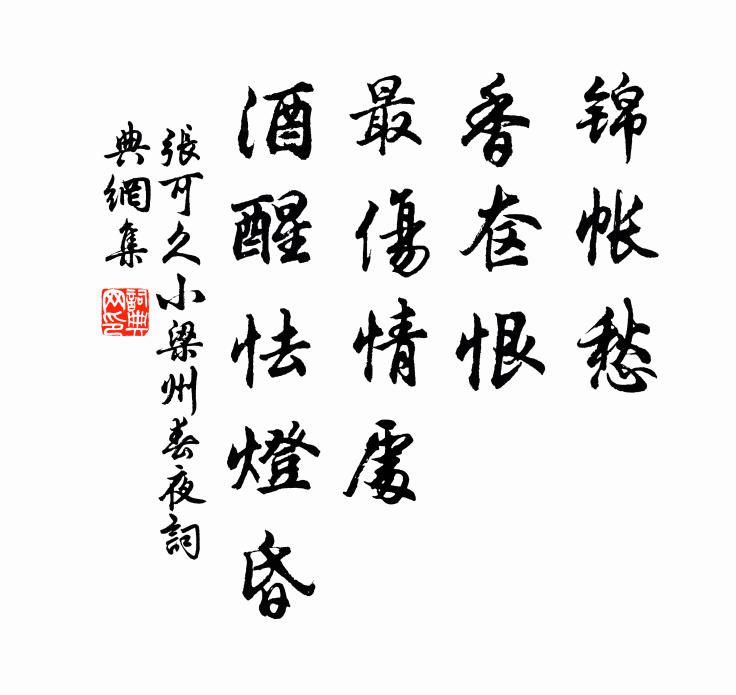 锦帐愁
香奁恨
最傷情處
酒醒怯燈昏
張可久小梁州春夜詞
典網集
詞典
网印